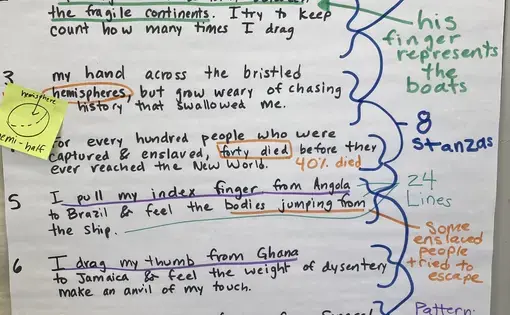 the fragile continents. I try to keep
count how many times I drag
his
finger
represents
the
boats
3
my hand across the bristled
hemispheres, but grow weary of chasing
history that swallowed me.
hemisphere
hemi-half
8
stanzas
for every hundred people who were
captured & enslaved, forty died before they
ever reached the New World. 40% died
5
I pull my index finger from Angola
to Brazil & feel the bodies jumping from
the ship.
24
Lines
Some
enslaved
people
tried to
escape
6
I drag my thumb from Ghana
to Jamaica & feel the weight of dysentery
make an anvil of my touch.
Pattern: